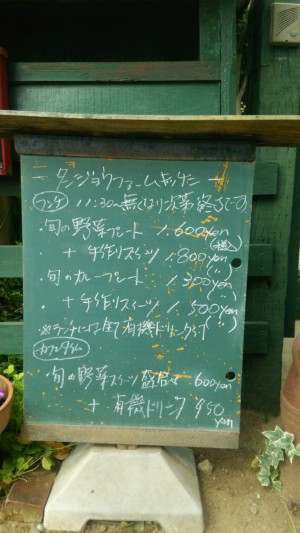 タンジョウファームキッチン
ランチ 11:30〜無くなり次第終了です
・旬の野菜プレート 1,600yen
(税込)
+ 手作りスイーツ 1,800yen
(〃)
・旬のカレープレート 1,300yen
(〃)
+ 手作りスイーツ 1,500yen
(〃)
※ランチには全て有機ドリンクつき
カフェタイム
・旬の野菜スイーツ 盛合せ 600yen
+ 有機ドリンク 950yen